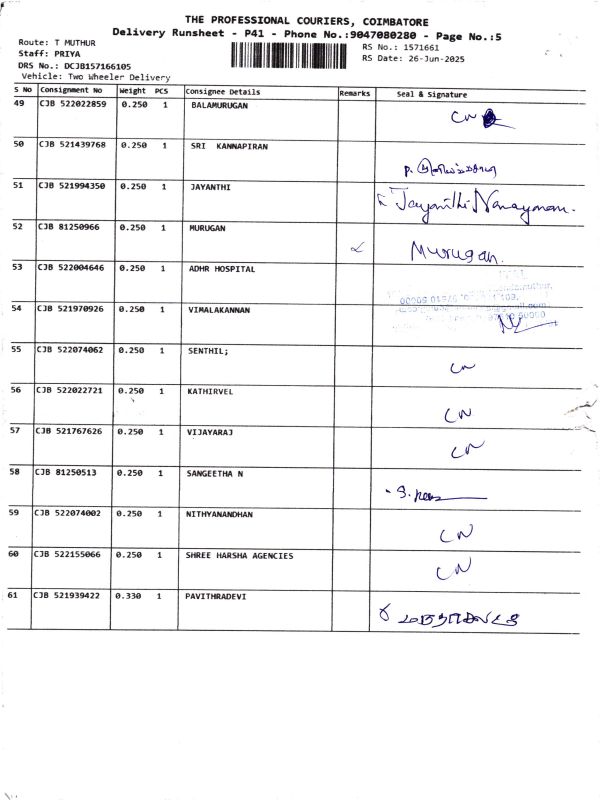 THE PROFESSIONAL COURIERS, COIMBATORE
Delivery Runsheet - P41 - Phone No.:9047080280 - Page No.:5
Route: T MUTHUR
Staff: PRIYA
DRS No.: DCJB157166105
Vehicle: Two Wheeler Delivery
RS No.: 1571661
RS Date: 26-Jun-2025
S No Consignment No Weight PCS Consignee Details Remarks Seal & Signature
49 CJB 522022859 0.250 1 BALAMURUGAN CN
50 CJB 521439768 0.250 1 SRI KANNAPIRAN
51 CJB 521994350 0.250 1 JAYANTHI Jayanthi Narayanan.
52 CJB 81250966 0.250 1 MURUGAN Murugan.
53 CJB 522004646 0.250 1 ADHR HOSPITAL
54 CJB 521970926 0.250 1 VIMALAKANNAN
55 CJB 522074062 0.250 1 SENTHIL; CN
56 CJB 522022721 0.250 1 KATHIRVEL CN
57 CJB 521767626 0.250 1 VIJAYARAJ CN
58 CJB 81250513 0.250 1 SANGEETHA N
59 CJB 522074002 0.250 1 NITHYANANDHAN CN
60 CJB 522155066 0.250 1 SHREE HARSHA AGENCIES CN
61 CJB 521939422 0.330 1 PAVITHRADEVI